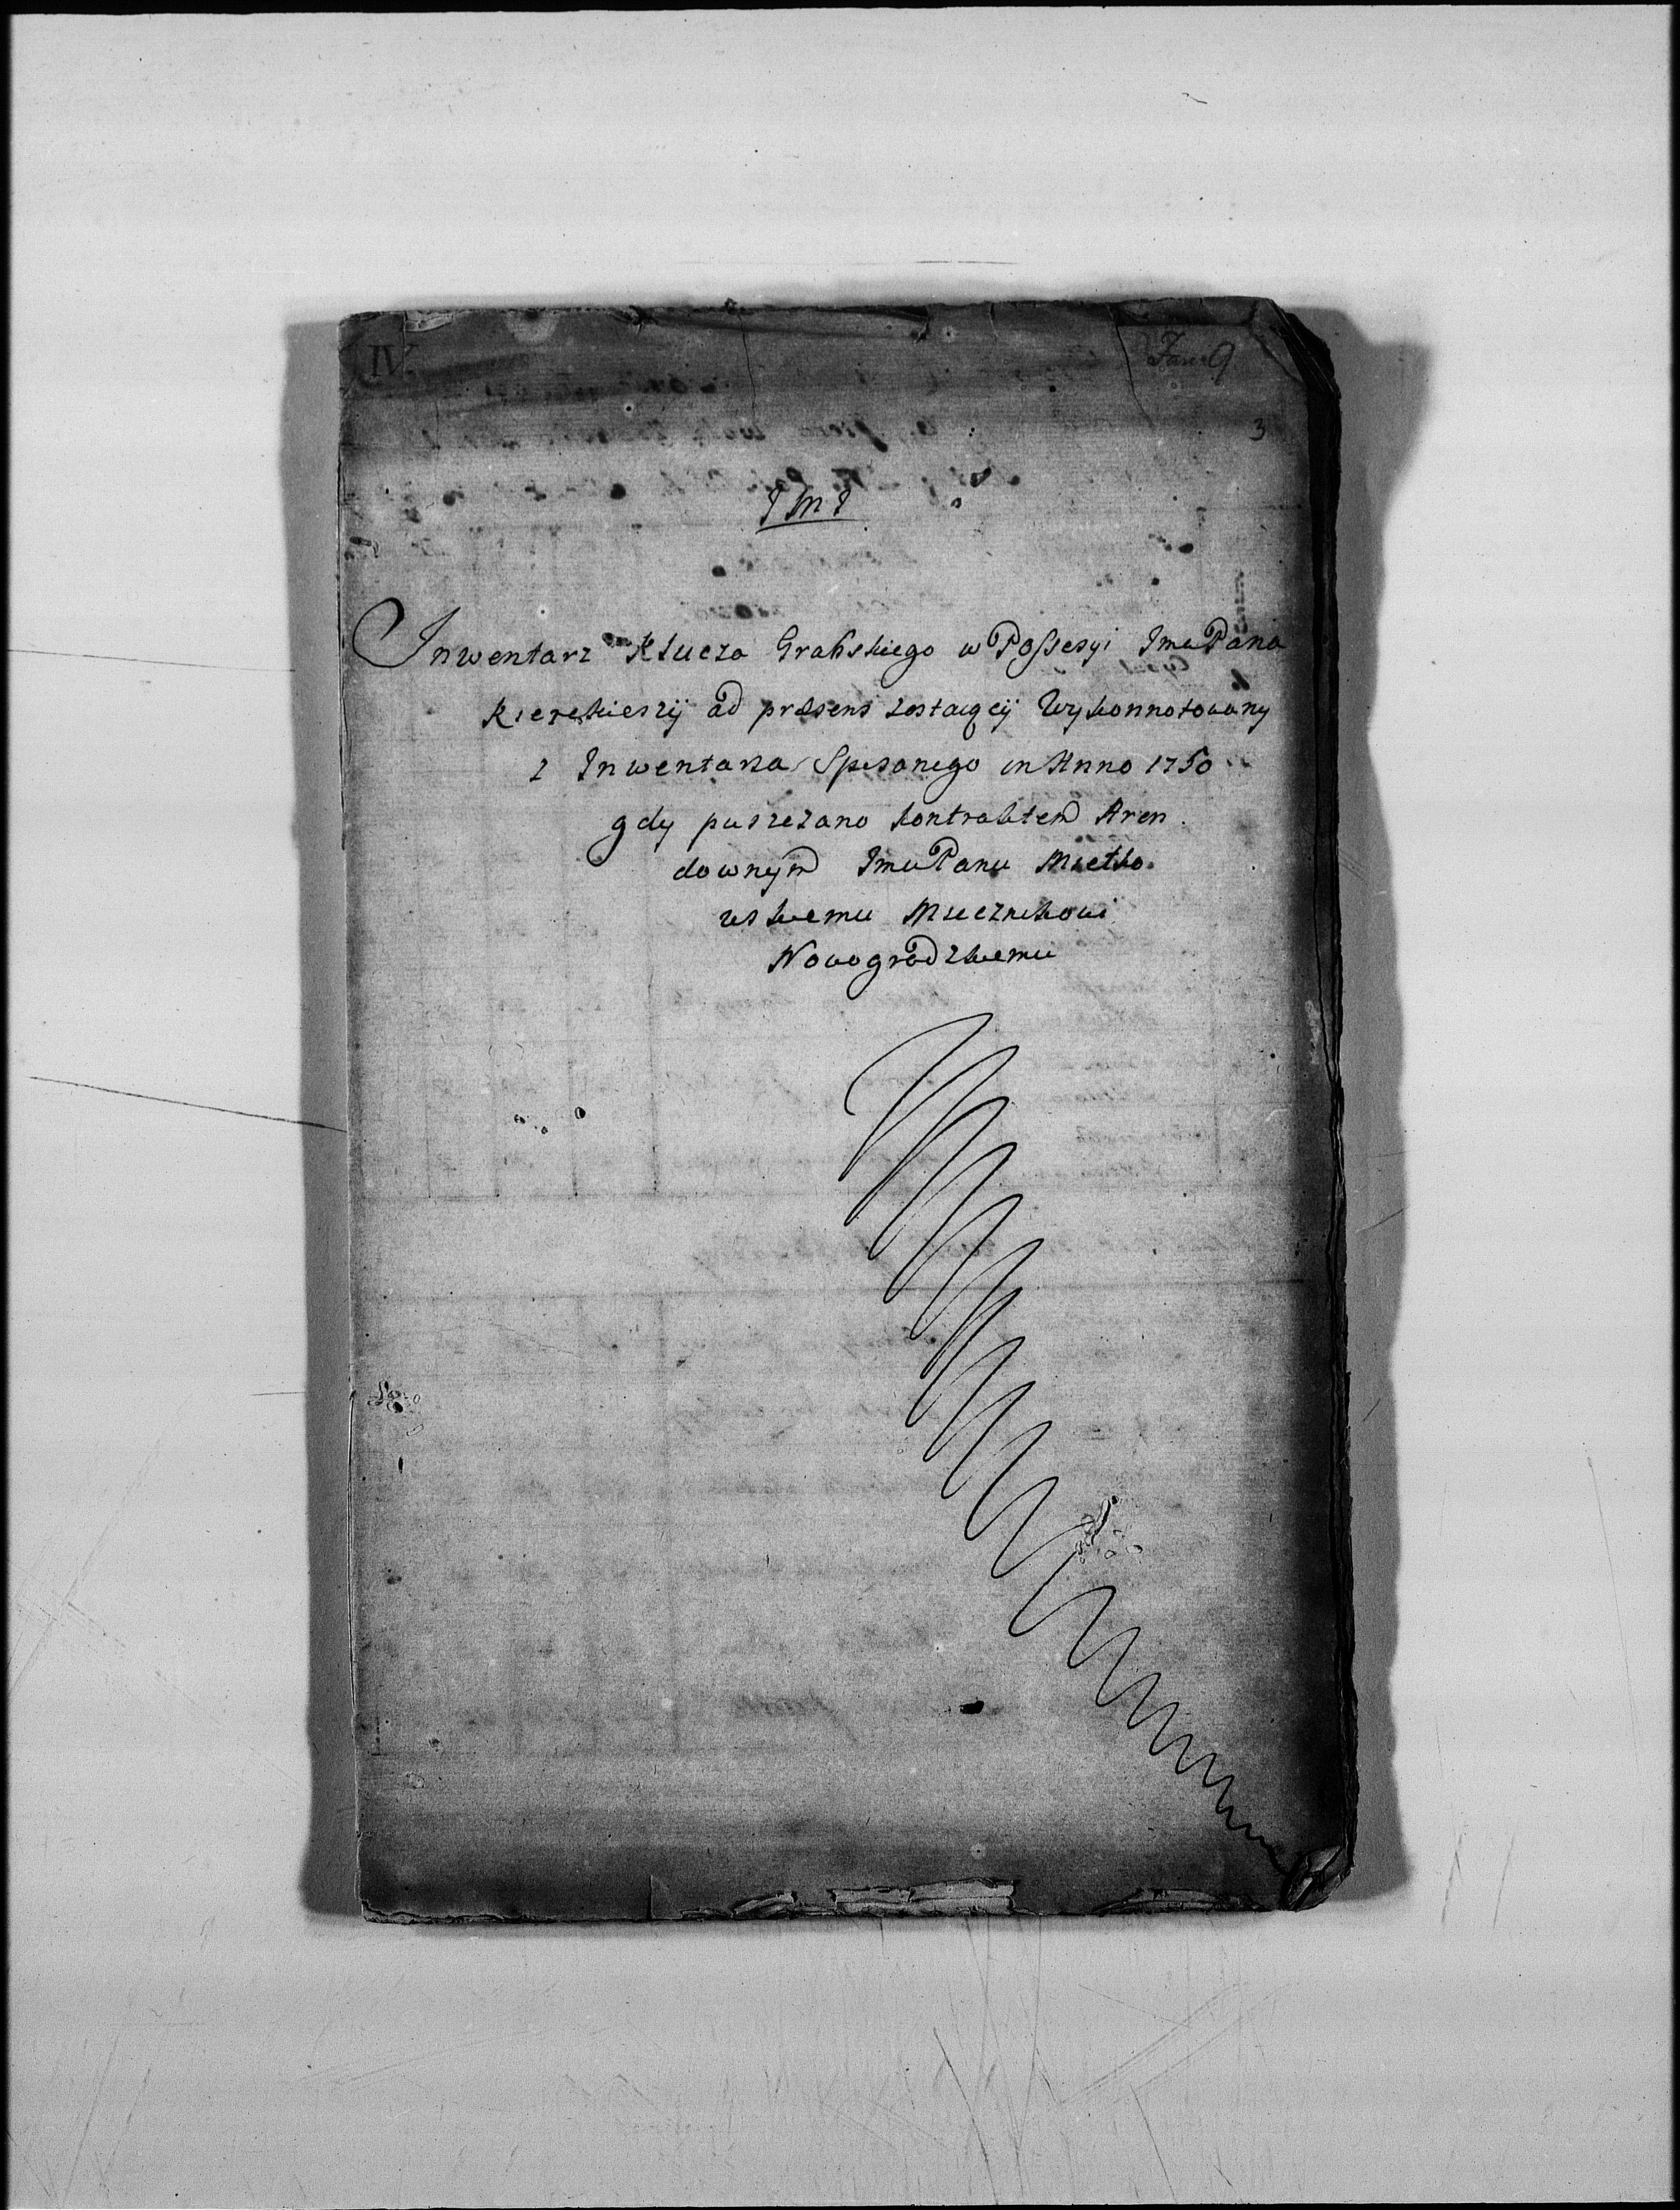 IV.
Fasc 9
3
J M J
Inwentarz Klucza Grabskiego w Possesyi Jmu Pana
ad præsens zostaiącij Wykonnotowany
z Inwentarza Spisanego in Anno 1750
gdy puszczano kontraktem Aren
downym Jmu Panu Mietko
wskiemu Miecznikowi
Nowogrodzkiemu